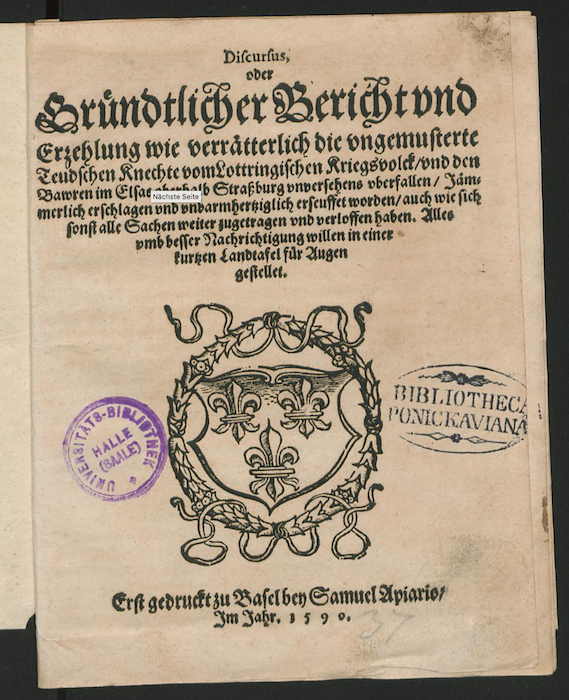 Discursus,
oder
Gründtlicher Bericht vnd
Erzehlung wie verrätterlich die vngemusterte
Teudschen Knechte vom Lottringischen Kriegsvolck/ vnd den
Bawren im Elsas oberhalb Straßburg vnversehens vberfallen/ Jäm-
Nächste Seite
merlich erschlagen vnd vnbarmhertziglich erseuffet worden/ auch wie sich
sonst alle Sachen weiter zugetragen vnd verloffen haben. Alles
vmb besser Nachrichtigung willen in einer
kurtzen Landtafel für Augen
gestellet.
BIBLIOTHECA
PONICKAVIANA
UNIVERSITÄTS-BIBLIOTHEK
HALLE
(SAALE)
Erst gedruckt zu Basel bey Samuel Apiario/
Im Jahr. 1590.
37